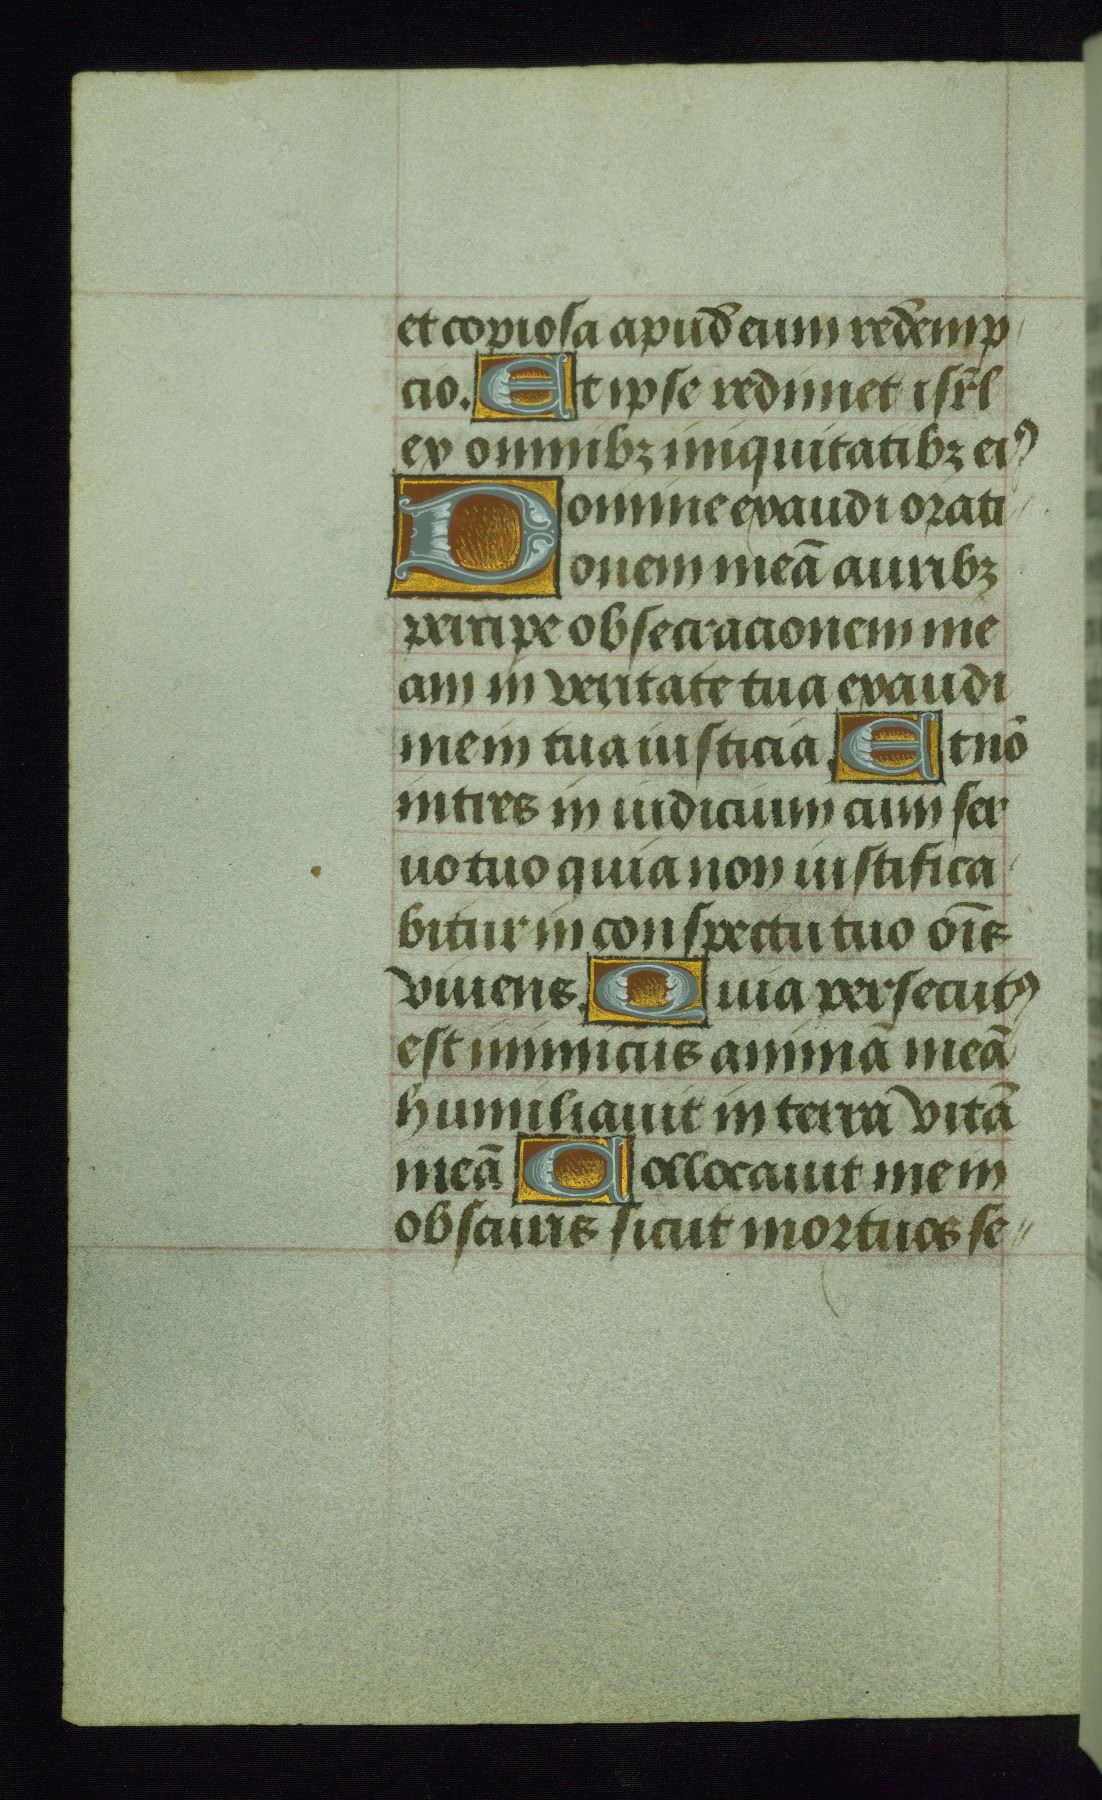 et copiosa apud eum redemp
cio. Et ipse redimet isrl̄
ex omnibꝫ iniquitatibꝫ eiꝰ
Domine exaudi orati
onem meā auribꝫ
percipe obsecracionem me
am in veritate tua exaudi
me in tua iusticia. Et nō
intres in iudicium cum ser
uo tuo quia non iustifica
bitur in conspectu tuo oīs
viuens. Quia persecutꝰ
est inimicus animā meā
humiliauit in terra vitā
meā Collocauit me in
obscuris sicut mortuos se〃